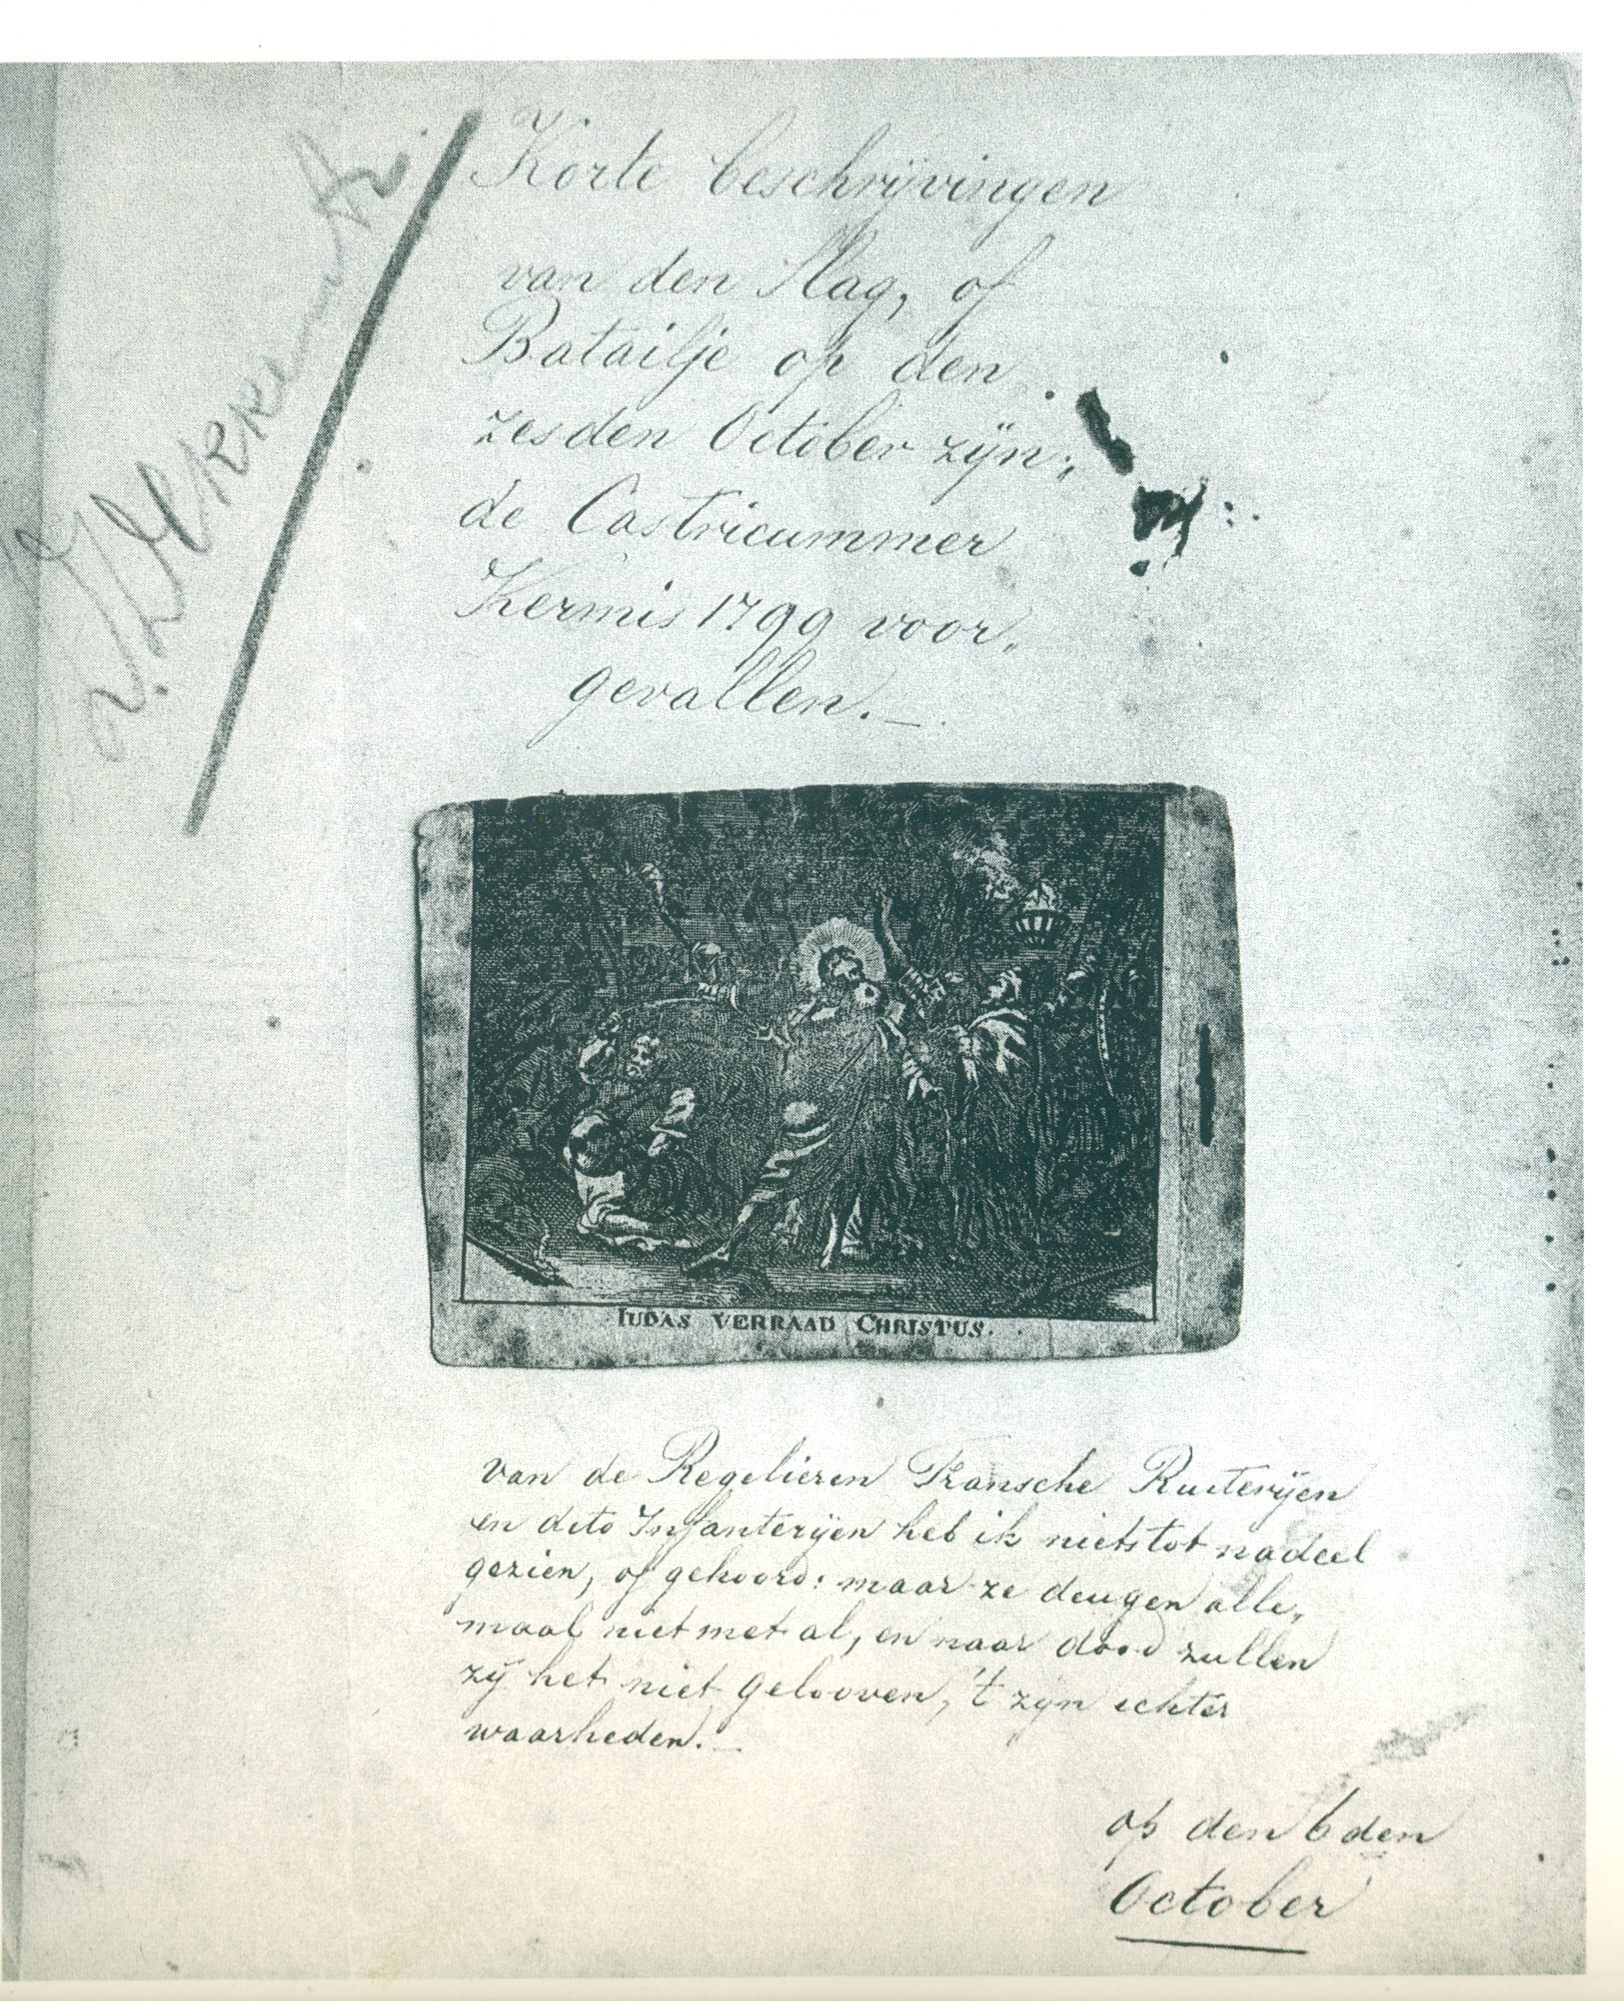 Korte beschrijvingen
van den Slag, of
Batailje op den
zesden October zijn„
de Castricummer
Kermis 1799 voor„
gevallen.—
IUDAS VERRAAD CHRISTUS.
van de Regelieren Fransche Ruiterijen
en dito Infanterijen heb ik niets tot nadeel
gezien, of gehoord: maar ze deugen alle„
maal niet met al, en naar dood zullen
zij het niet gelooven, 't zijn echter
waarheden.—
op den 6den
October